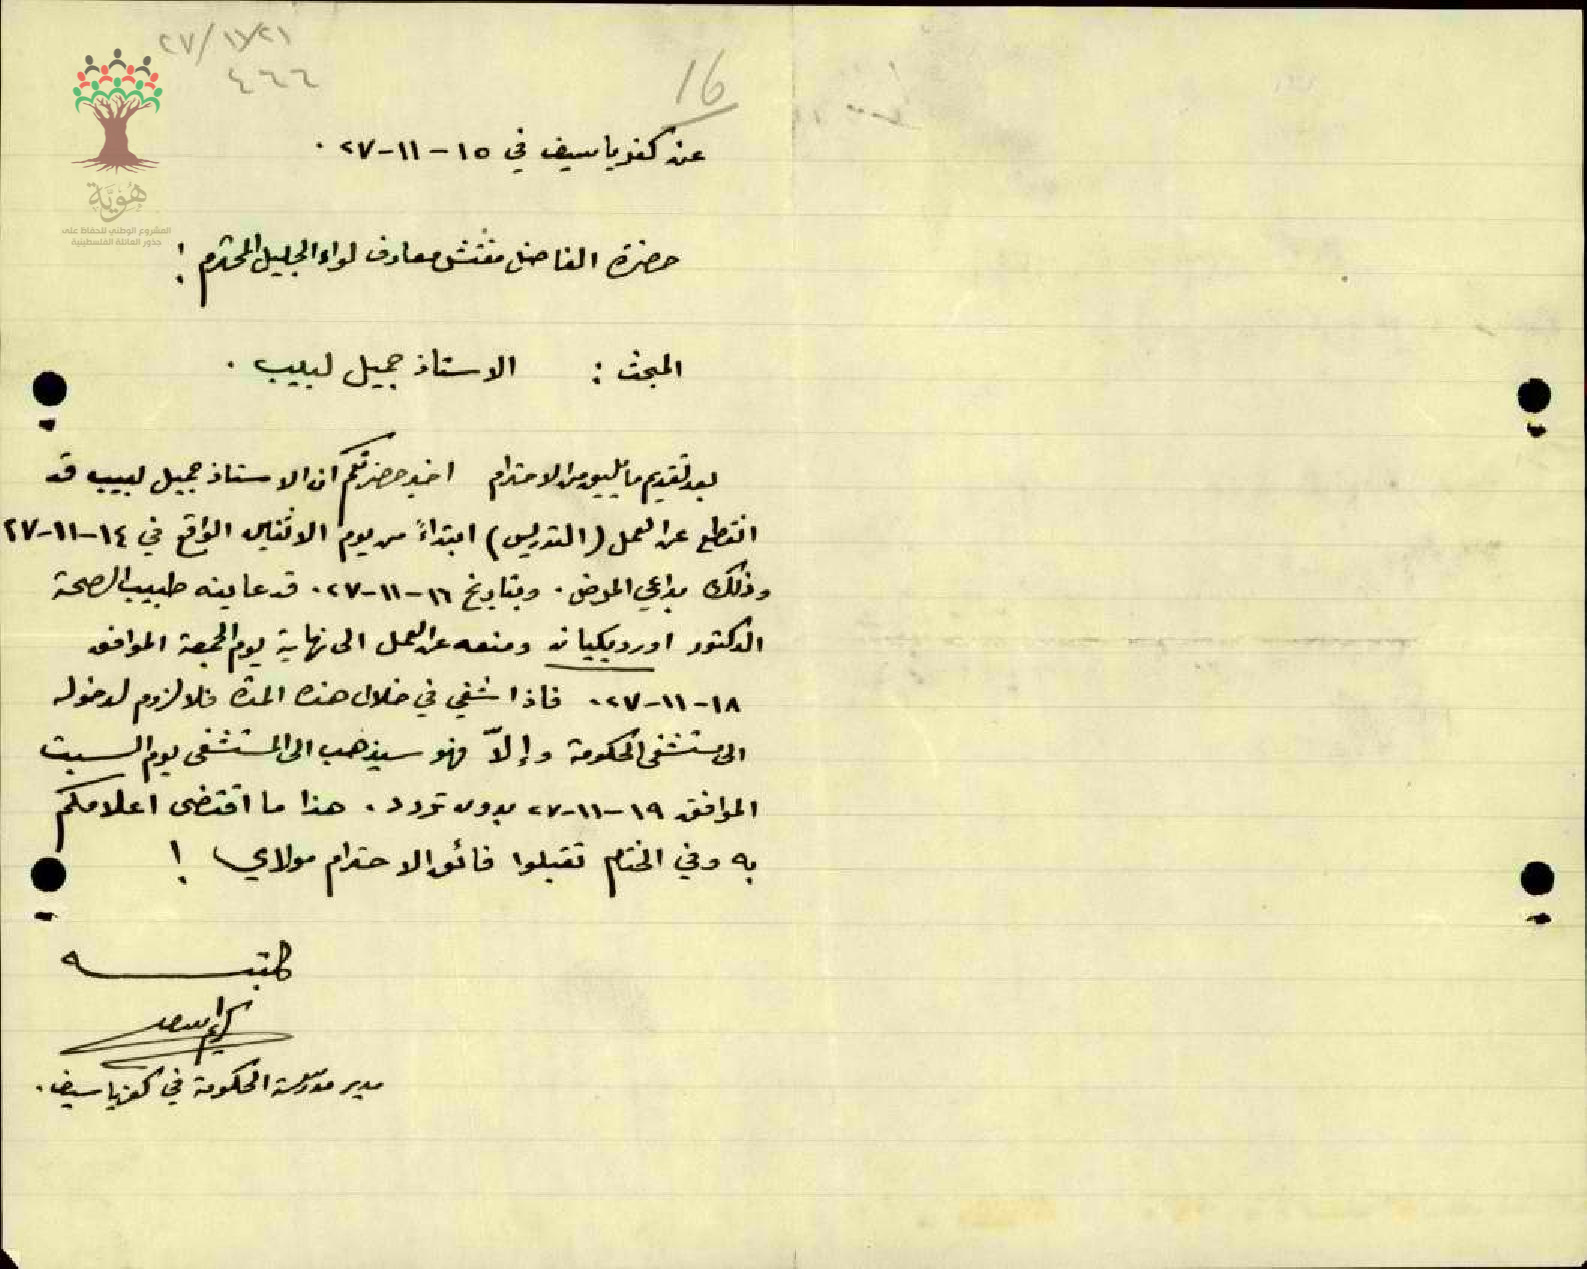 ٢٧/١١/٢١
٤٦٦
16
عن كفرياسيف في ١٥-١١-٢٧.
هُوِيَّة
المشروع الوطني للحفاظ على
جذور العائلة الفلسطينية
حضرة الفاضل مفتش معارف لواء الجليل المحترم !
المبحث : الاستاذ جميل لبيب .
بعد تقديم ما يليق من الاحترام اخبر حضرتكم ان الاستاذ جميل لبيب قد
انقطع عن العمل (التدريس) ابتداءً من يوم الاثنين الواقع في ١٤-١١-٢٧
وذلك بداعي المرض. وبتاريخ ١٦-١١-٢٧. قد عاينه طبيب الصحة
الدكتور اورديكيان ومنعه عن العمل الى نهاية يوم الجمعة الموافق
١٨-١١-٢٧. فاذا شفي في خلال هذه المدة فلا لزوم لدخوله
الى مستشفى الحكومة وإلاّ فهو سيذهب الى المستشفى يوم السبت
الموافق ١٩-١١-٢٧ بدون تردد. هذا ما اقتضى اعلامكم
به وفي الختام تقبلوا فائق الاحترام مولاي !
كاتبه
مدير مدرسة الحكومة في كفرياسيف.